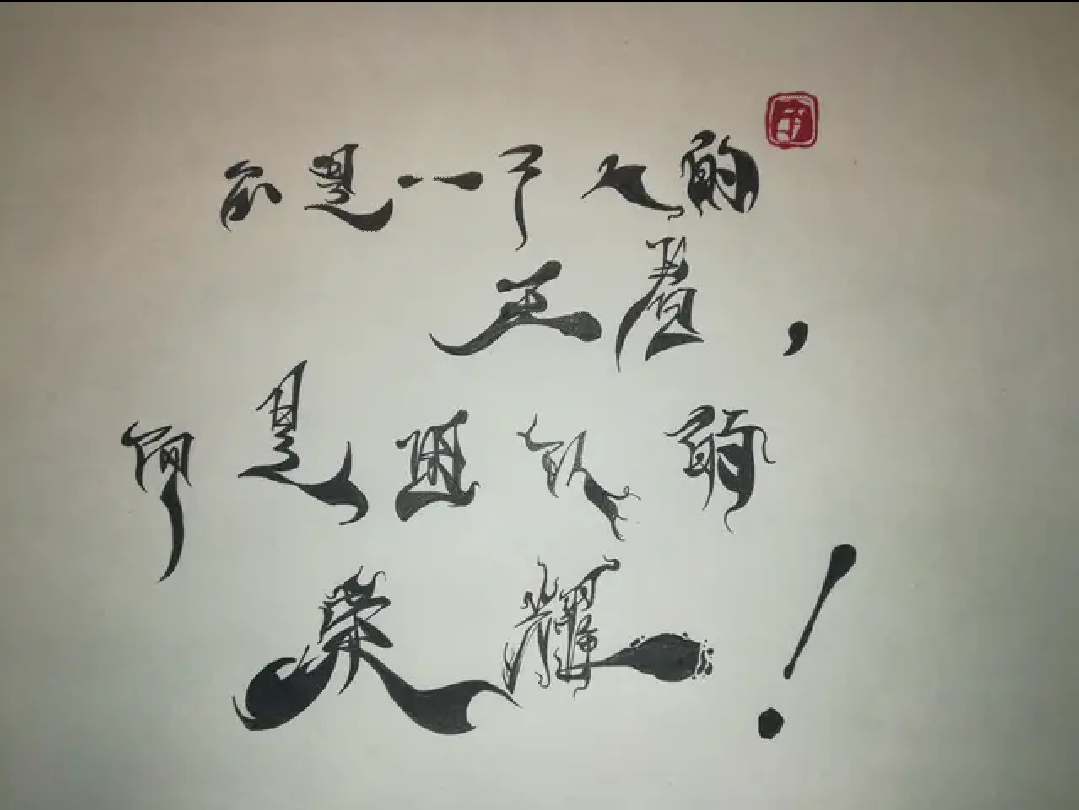 不是一个人的
王者,
而是团队的
荣耀!